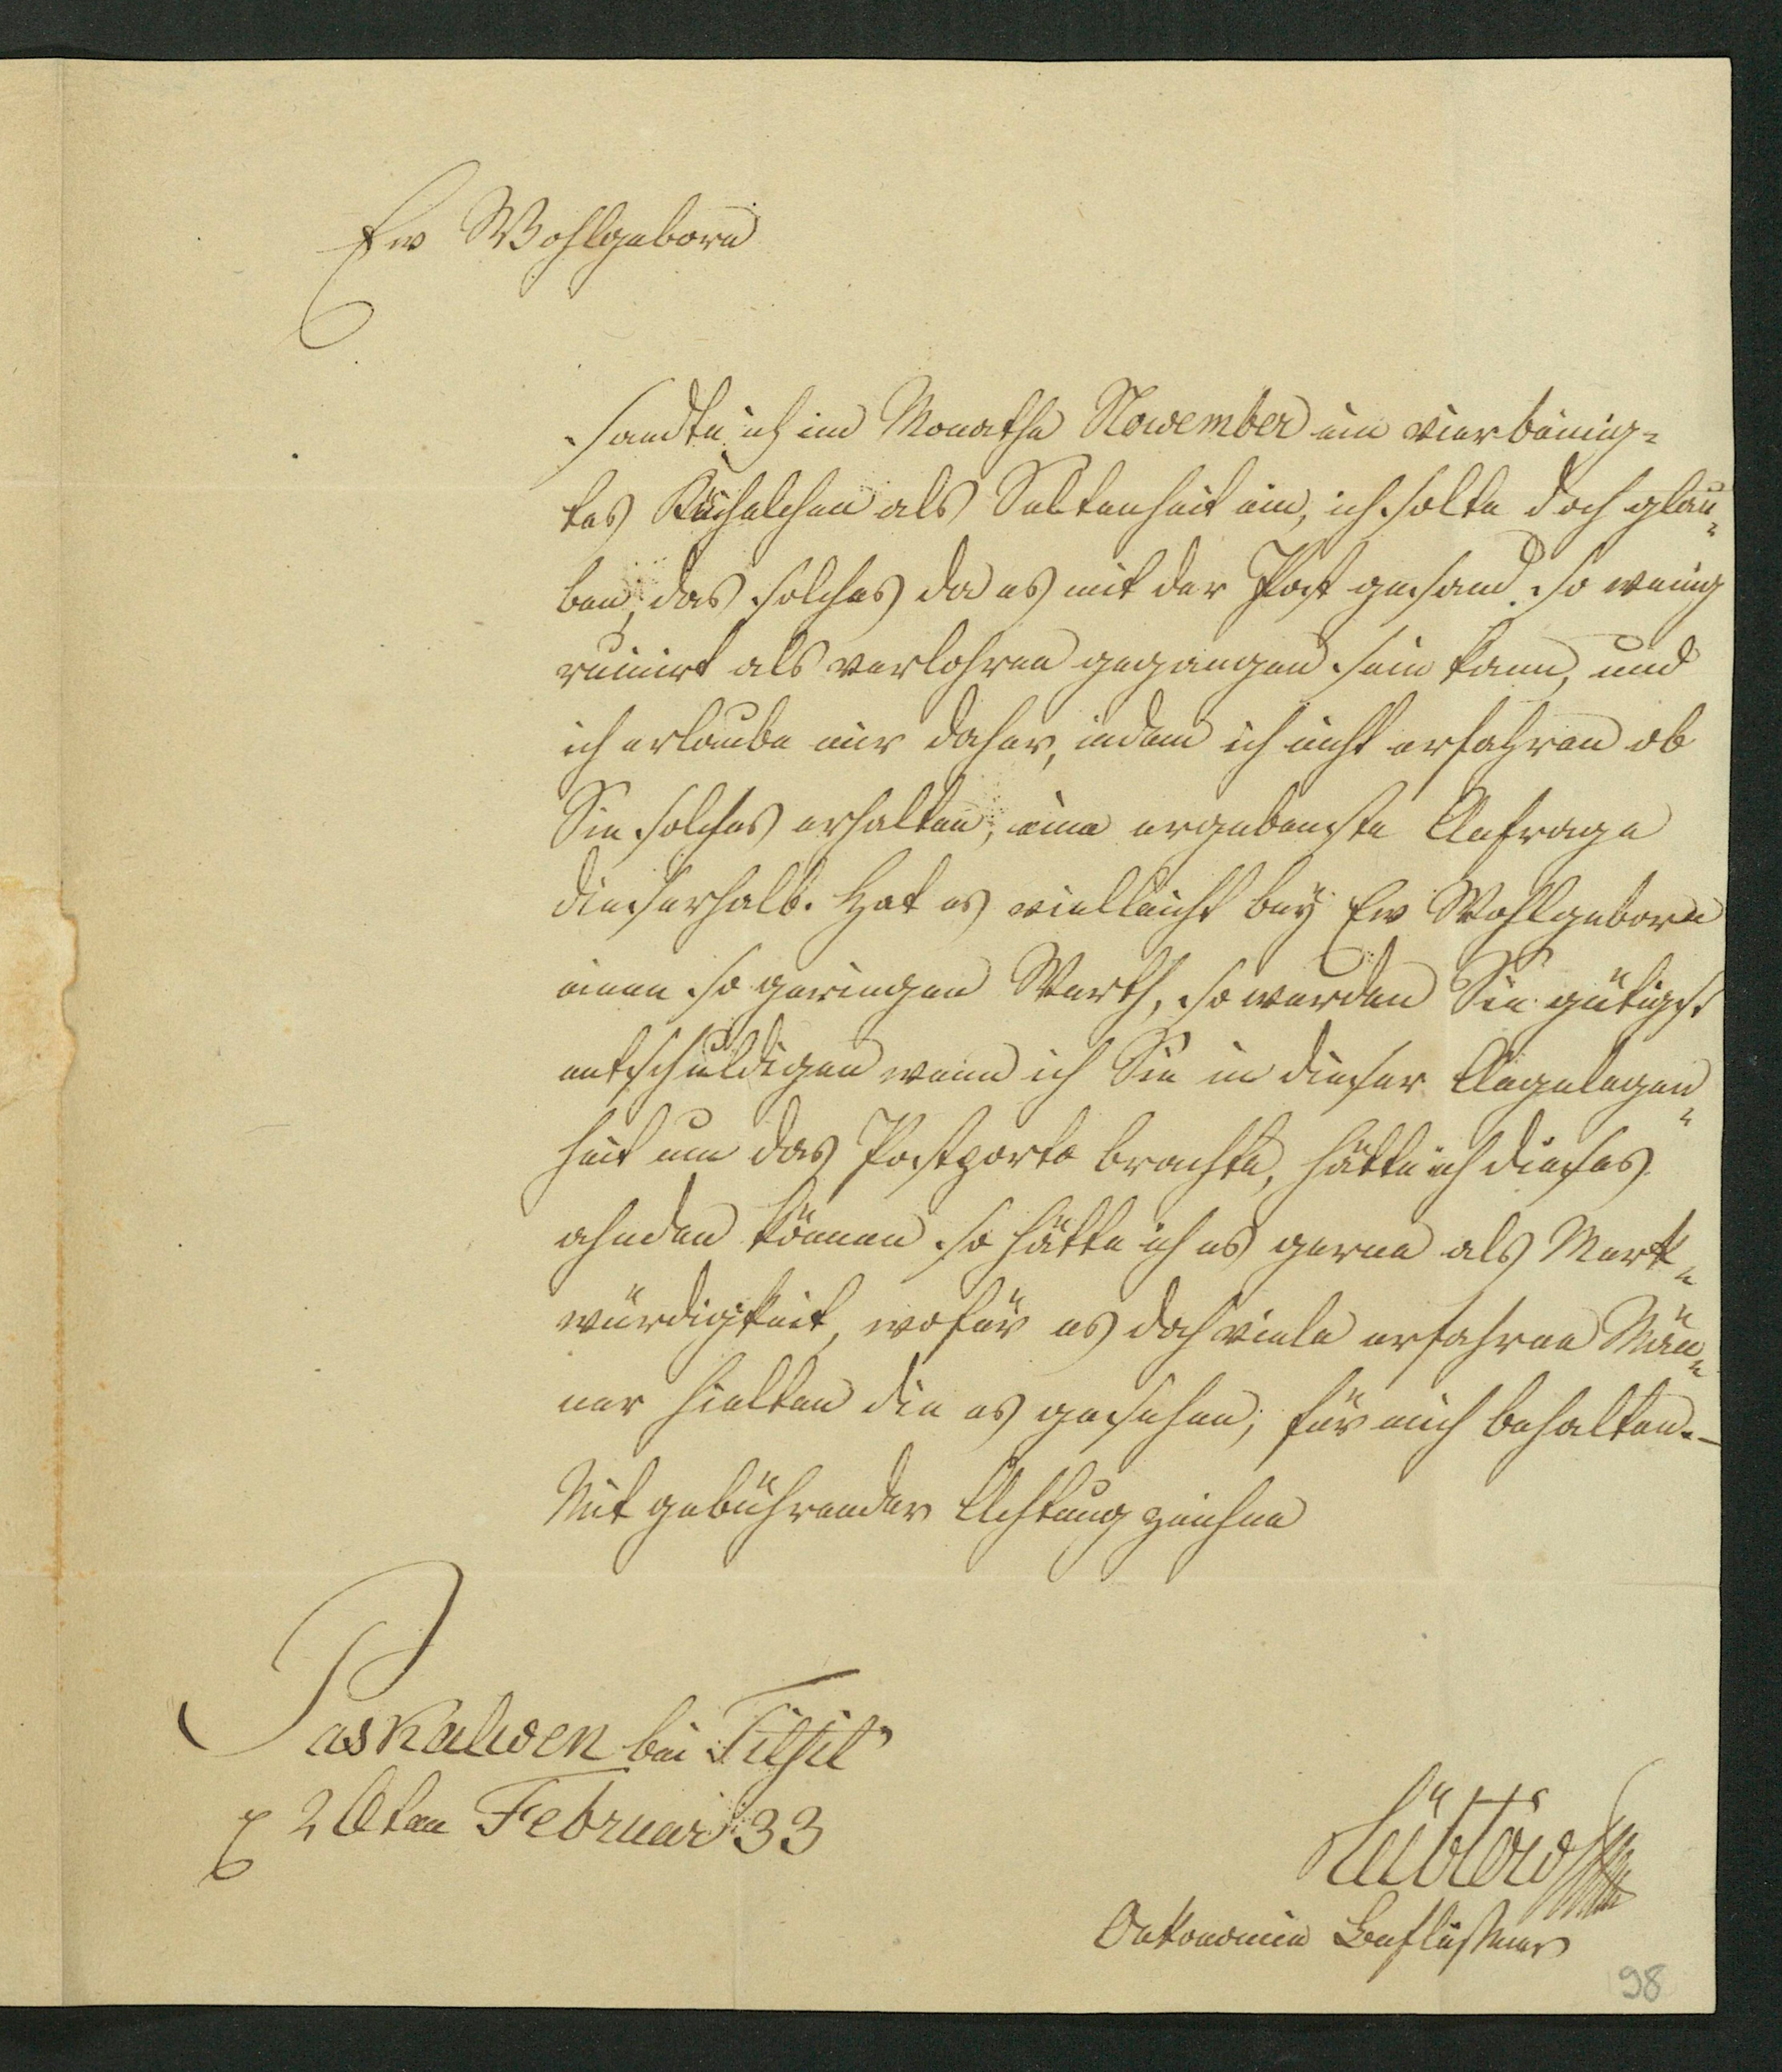 Ew Wohlgeborn
sandte ich im Monathe November ein vierbeinig=
tes Küchelchen als Seltenheit ein, ich solte doch glau=
ben, das solches da es mit der Post gesand. so wenig
ruinirt als verlohren gegangen sein kann, und
ich erlaube mir daher, indem ich nicht erfahren ob
Sie solches erhalten, eine ergebenste Anfrage
dieserhalb. Hat es vielleicht bey Ew Wohlgeborn
einen so geringen Werth, so werden Sie gütigst
entschuldigen wenn ich Sie in dieser Angelegen=
heit um das Postporto brachte, hätte ich dieses
ahnden können so hätte ich es gerne als Merk=
würdigkeit, wofür es doch viele erfahrne Män=
ner hielten die es gesehen, für mich behalten. –
Mit gebührender Achtung zeichne
Paskalwen bei Tilsit
d 20ten Februar 33
Lübtow
Oekonomie Beflissener
98